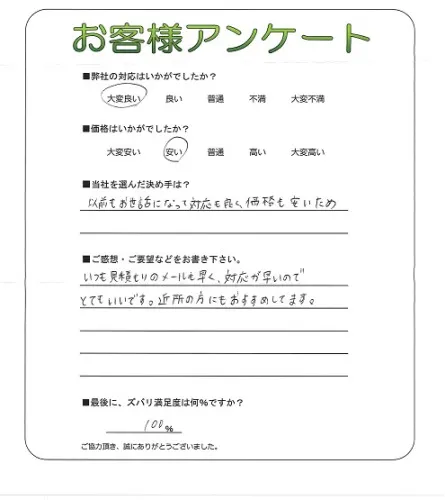 お客様アンケート
■弊社の対応はいかがでしたか？
大変良い 良い 普通 不満 大変不満
■価格はいかがでしたか？
大変安い 安い 普通 高い 大変高い
■当社を選んだ決め手は？
以前もお世話になって対応も良く、価格も安いため
■ご感想・ご要望などをお書き下さい。
いつも見積もりのメールも早く、対応が早いので
とてもいいです。近所の方にもおすすめしてます。
■最後に、ズバリ満足度は何％ですか？
100％
ご協力頂き、誠にありがとうございました。